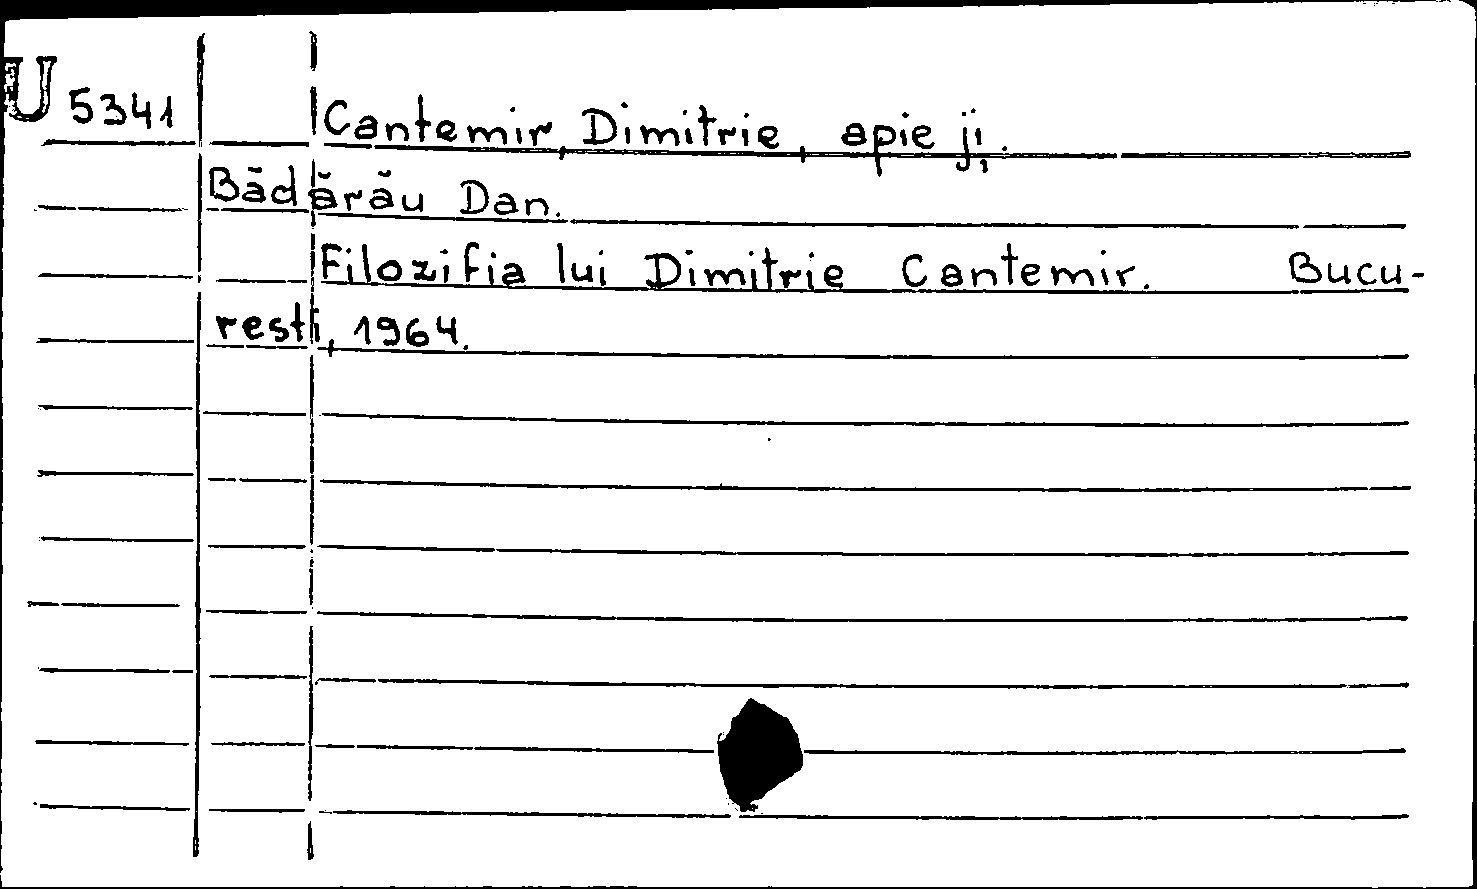 U 5341 Cantemir, Dimitrie, apie jį.
Bădărău Dan.
Filozifia lui Dimitrie Cantemir. Bucu-
resti, 1964.